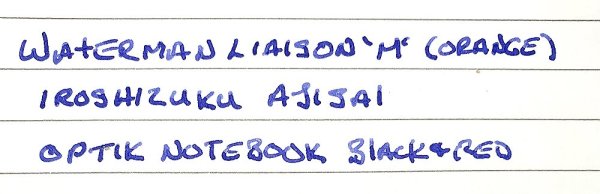 WATERMAN LIAISON 'M' (ORANGE)
IROSHIZUKU AJISAI
OPTIK NOTEBOOK Black & RED